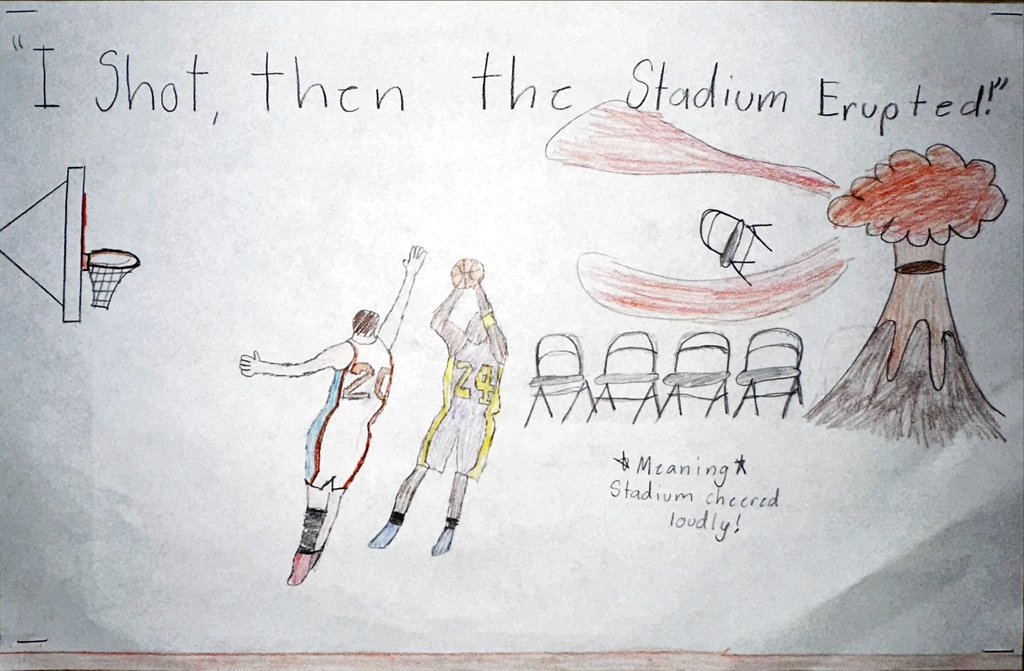 "I Shot, then the Stadium Erupted!"
20
24
*Meaning*
Stadium cheered
loudly!